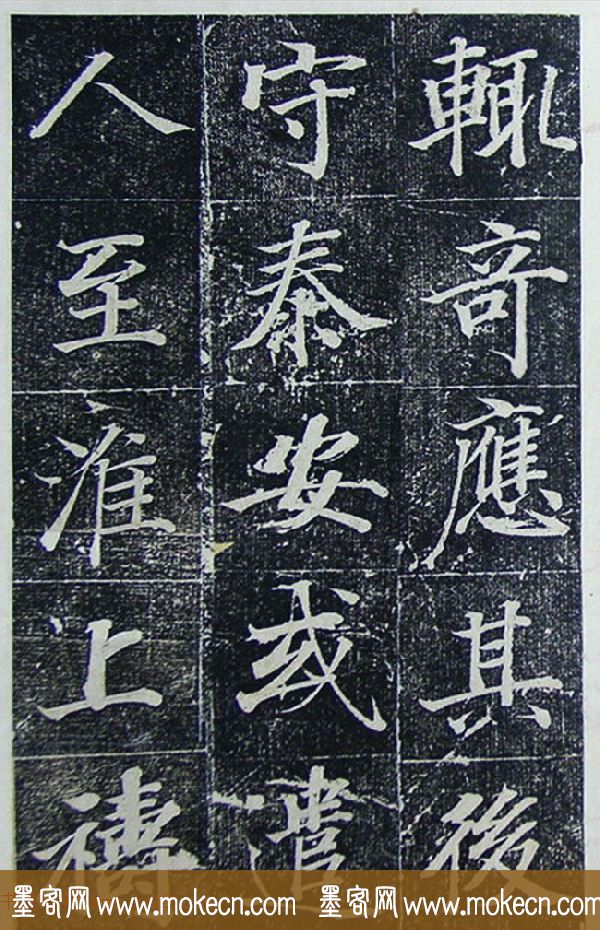 輙竒應其後
守泰安或遣
人至淮上禱
墨客网 www.mokecn.com 墨客网 www.mokecn.com